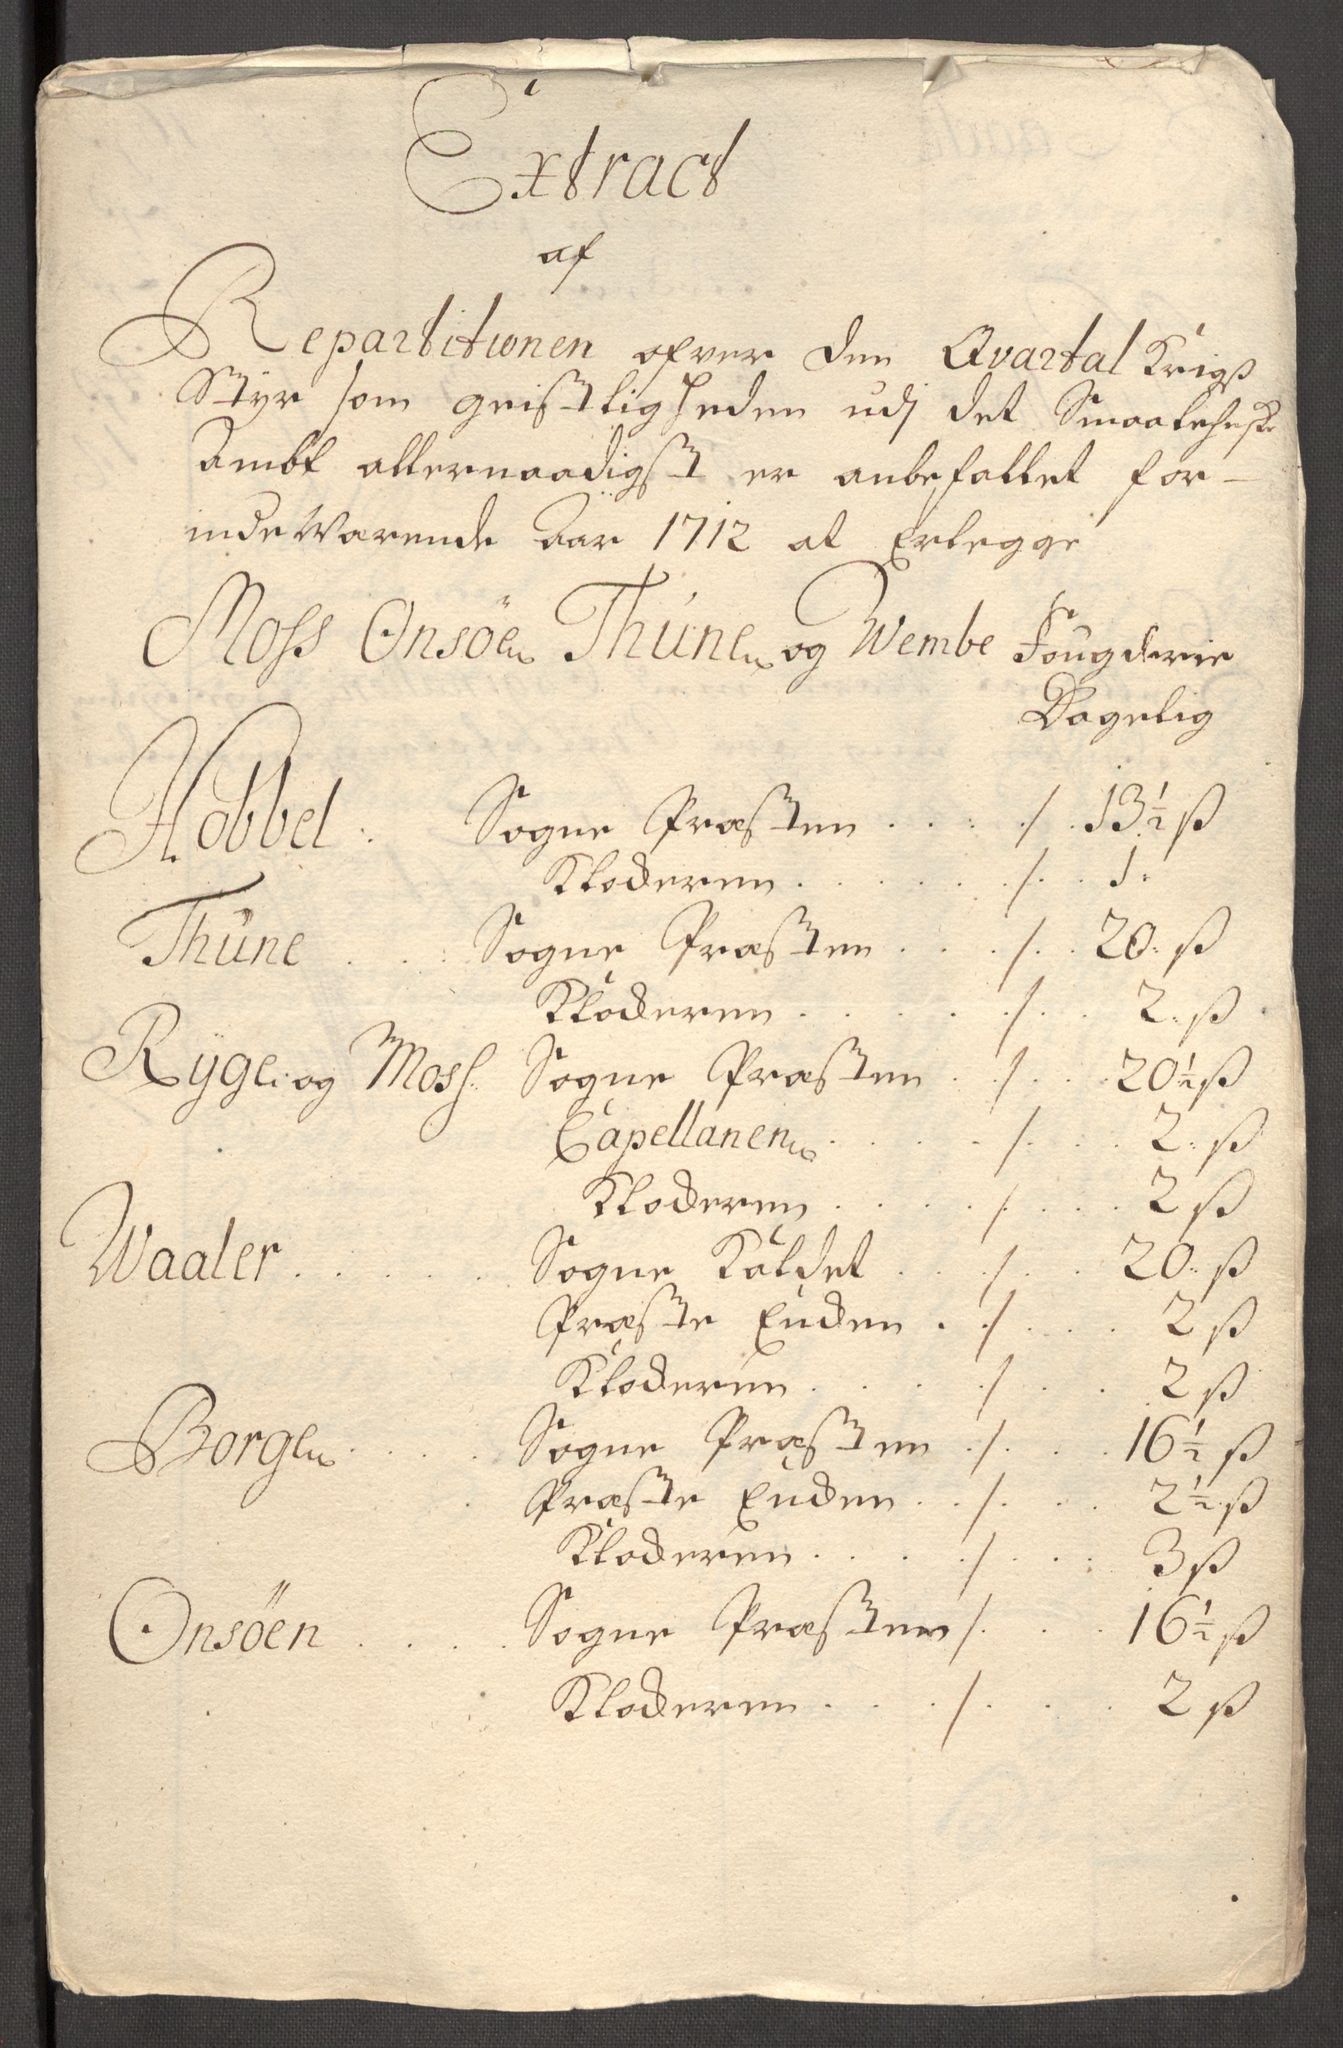 Extract
af
Repartitionen ofver den Qvartal Krigs
Styr som geistligheden udj det Smaalehnske
Ambt allernaadigst er anbefallet for
indeværende Aar 1712 at Erlegge
Moss Onsøe Thune og Wembe Fougderie
Dagelig
Hobbel : Sogne Præsten . . . . /. 13½ ß
Klockeren . . . . . /. . 1.
Thune . . . Sogne Præsten . . . /. . 20. ß
Klockeren . . . . . /. . 2. ß
Ryge og Moss Sogne Præsten . . /. . . 20½ ß
Capellanen . . . . . /. . . 2. ß
Klockeren . . . . . /. . . 2 ß
Waaler . . . . . Sogne Kaldet . . . /. . . 20. ß
Præste Enken . . /. . . . 2 ß
Klockeren . . . . /. . . 2 ß
Borge . . . Sogne Præsten . /. . . 16½ ß
Præste Enken . . . /. . . 2½ ß
Klockeren . . . . /. . . 3 ß
Onsøen . . . . Sogne Præsten /. . . 16½ ß
Klockeren . . . . /. . . 2 ß